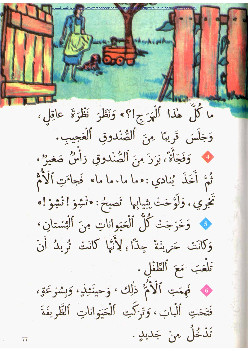 ما كُلُّ هٰذا ٱلْهَرَجِ!؟» وَنَظَرَ نَظْرَةَ عاقِلٍ،
وَجَلَسَ قَريبًا مِنَ ٱلصُّنْدوقِ ٱلْعَجيبِ.
٤ وَفَجْأَةً، بَرَزَ مِنَ ٱلصُّنْدوقِ رَأْسٌ صَغيرٌ،
ثُمَّ أَخَذَ يُنادي: «ما، ما، ما» فَجاءَتِ ٱلْأُمُّ
تَجْري، وَلَوَّحَتْ بِثِيابِها تَصيحُ: «تْشو! تْشو!»
٥ وَخَرَجَتْ كُلُّ ٱلْحَيَواناتِ مِنَ ٱلْبُسْتانِ،
وَكانَتْ حَزينَةً جِدًّا، لِأَنَّها كانَتْ تُريدُ أَنْ
تَلْعَبَ مَعَ ٱلطِّفْلِ.
٦ فَهِمَتِ ٱلْأُمُّ ذٰلِكَ، وَحينَئِذٍ، وَبِسُرْعَةٍ،
فَتَحَتِ ٱلْبابَ، وَتَرَكَتِ ٱلْحَيَواناتِ ٱلظَّريفَةَ
تَدْخُلُ مِنْ جَديدٍ.